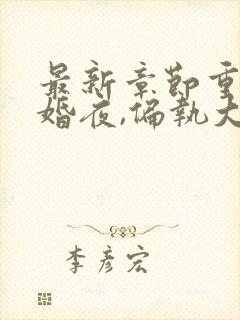 最新章节重
婚夜,偏执大
李彦宏